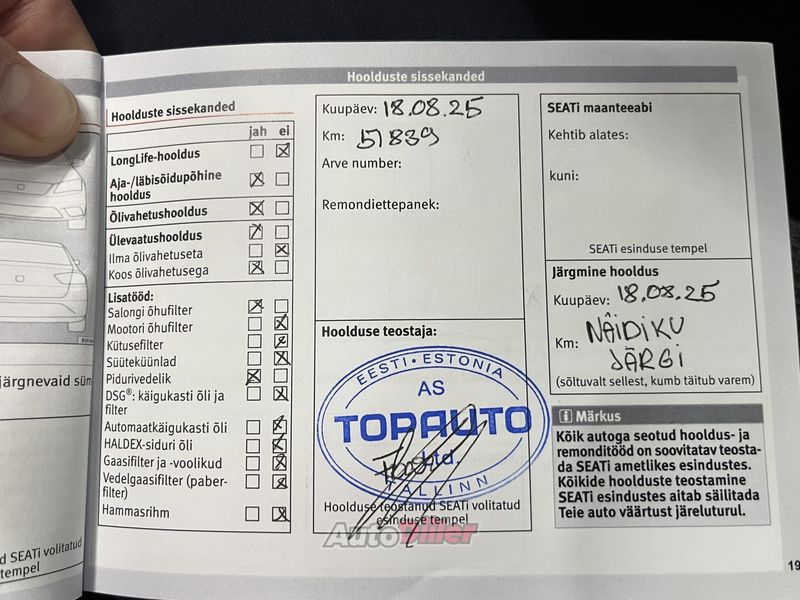 Hoolduste sissekanded
Hoolduste sissekanded
jah ei
LongLife-hooldus
Aja-/läbisõidupõhine
hooldus
Õlivahetushooldus
Ülevaatushooldus
Ilma õlivahetuseta
Koos õlivahetusega
Lisatööd:
Salongi õhufilter
Mootori õhufilter
Kütusefilter
Süüteküünlad
Pidurivedelik
DSG®: käigukasti õli ja
filter
Automaatkäigukasti õli
HALDEX-siduri õli
Gaasifilter ja -voolikud
Vedelgaasifilter (paber-
filter)
Hammasrihm
Kuupäev: 18.08.25
Km: 51839
Arve number:
Remondiettepanek:
Hoolduse teostaja:
EESTI • ESTONIA
AS
TOPAUTO
Ltd.
TALLINN
Hoolduse teostanud SEATi volitatud
esinduse tempel
SEATi maanteeabi
Kehtib alates:
kuni:
SEATi esinduse tempel
Järgmine hooldus
Kuupäev: 18.08.25
Km: NÄIDIKU
JÄRGI
(sõltuvalt sellest, kumb täitub varem)
i Märkus
Kõik autoga seotud hooldus- ja
remonditööd on soovitatav teosta-
da SEATi ametlikes esindustes.
Kõikide hoolduste teostamine
SEATi esindustes aitab säilitada
Teie auto väärtust järeluturul.
järgnevaid süm
d SEATi volitatud
tempel
19
AutoDiller